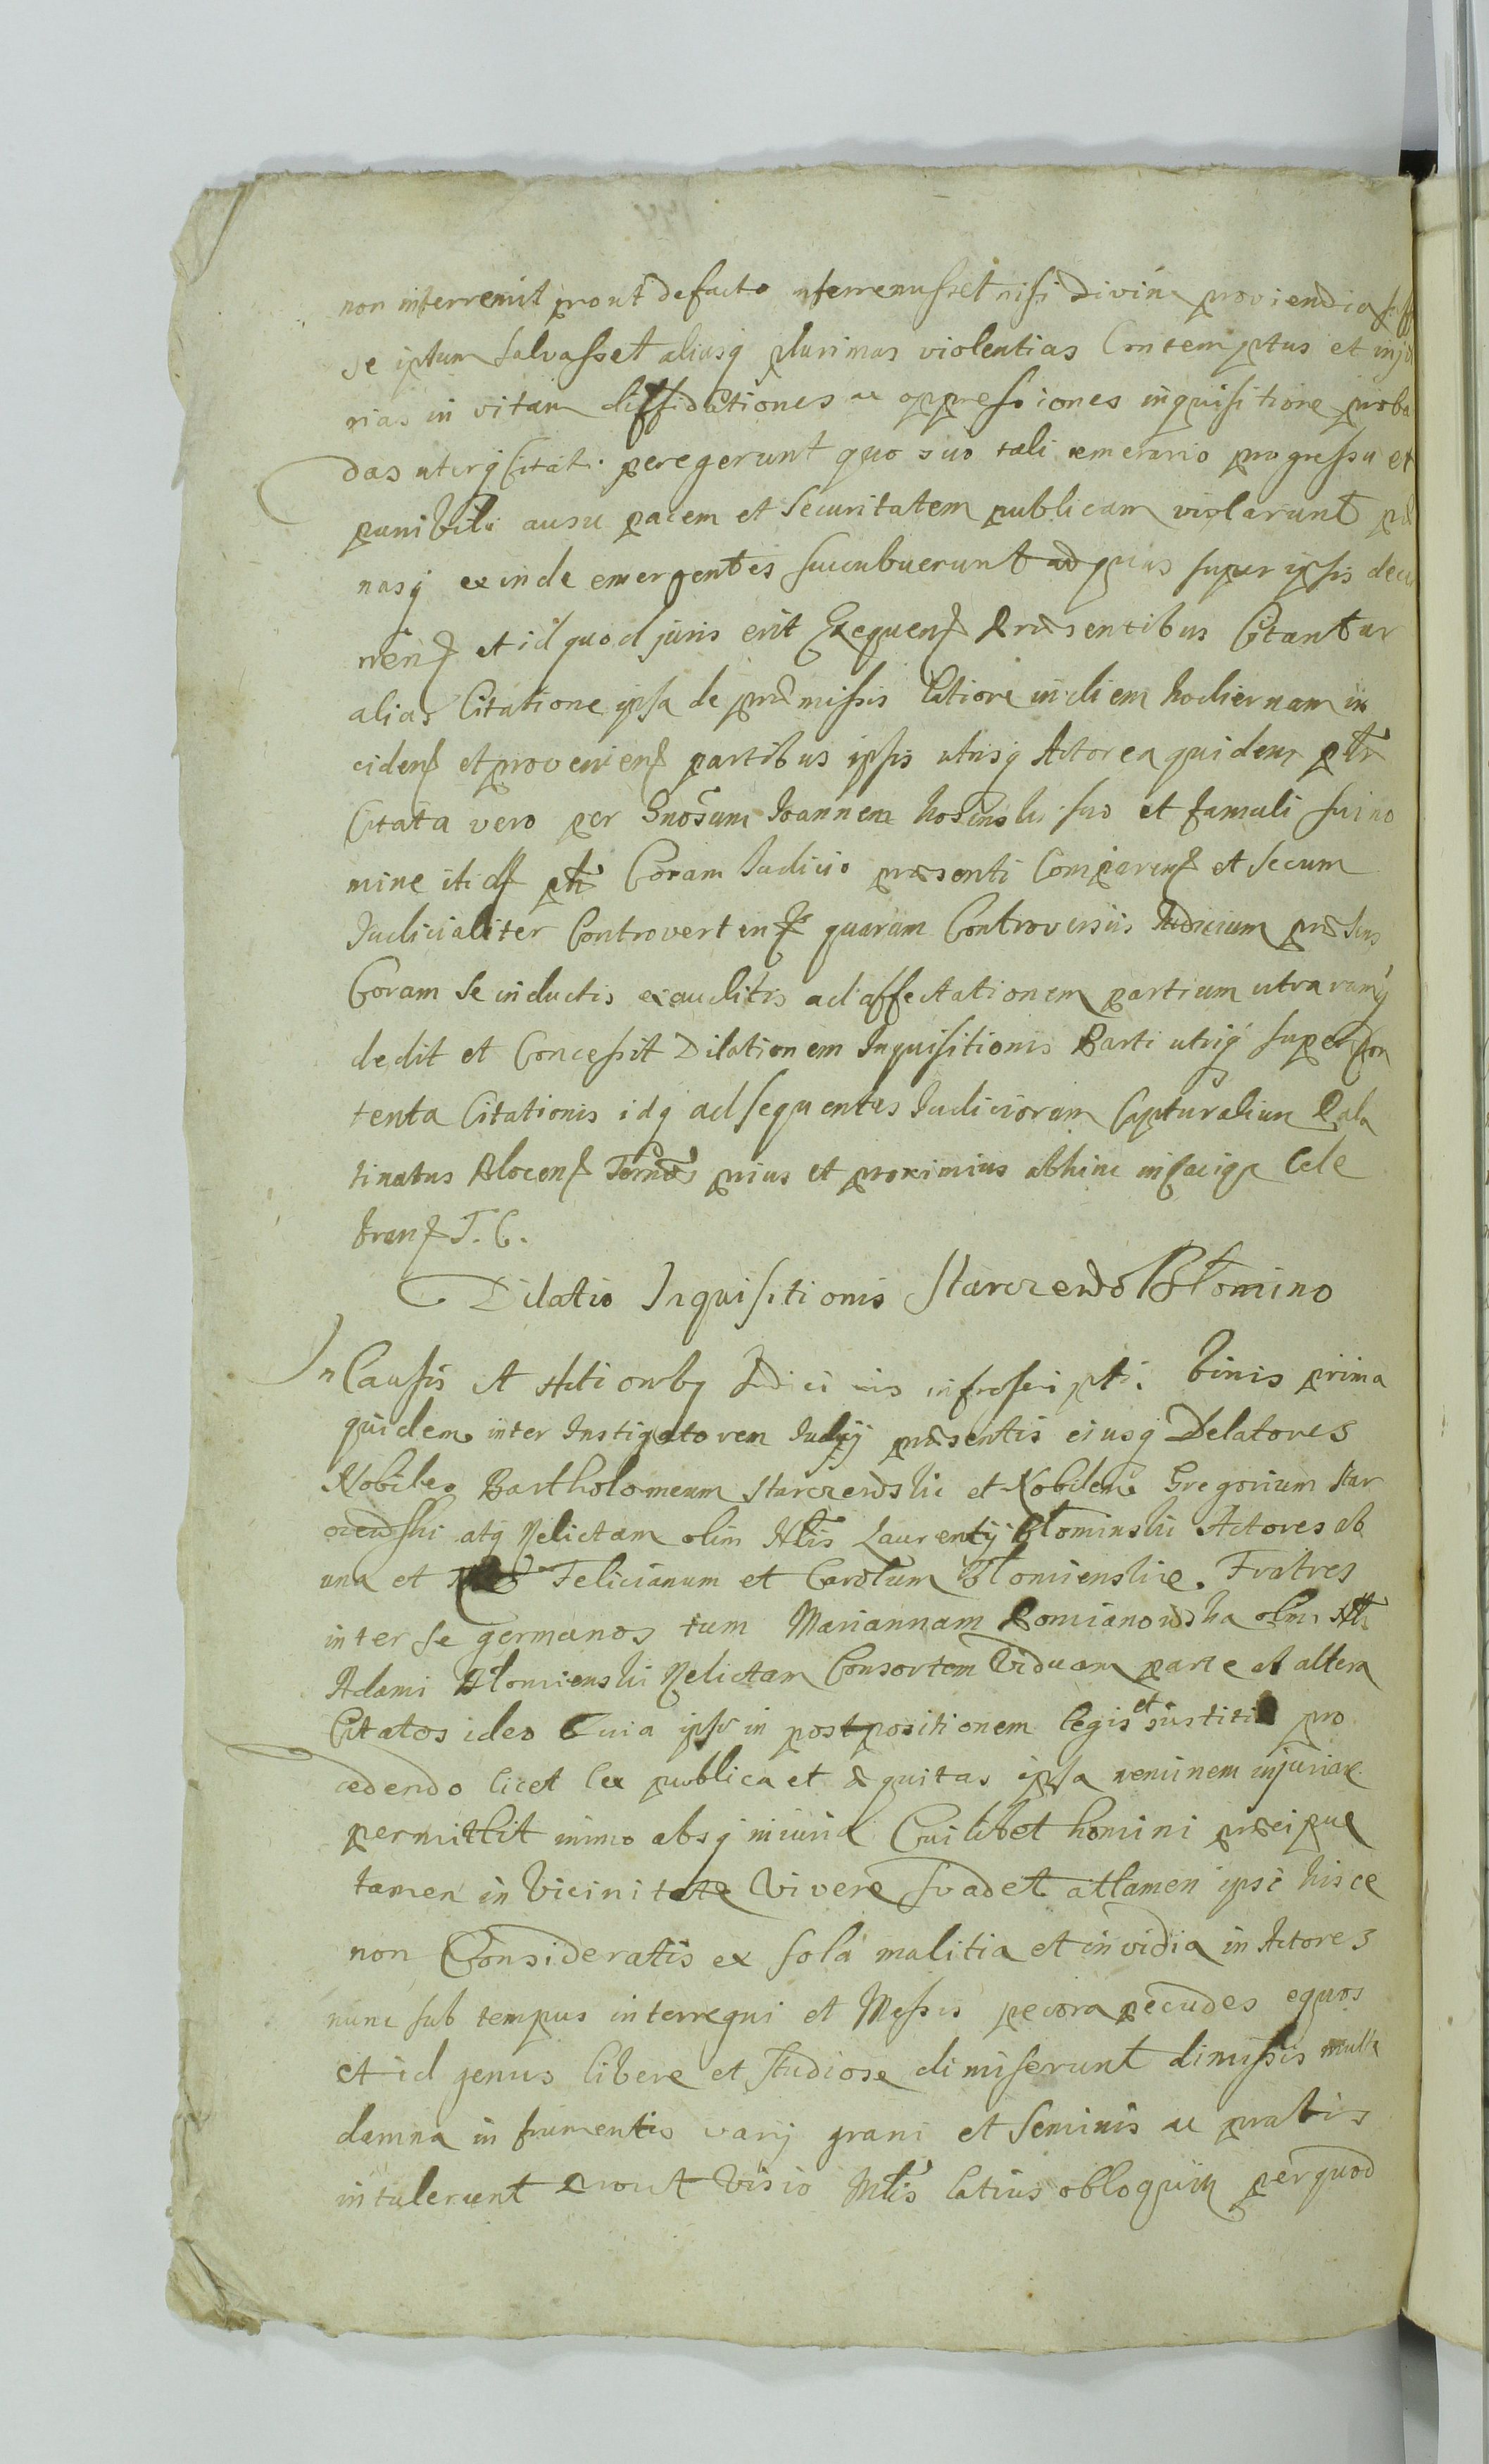 non interremit prout defacto interremisset nisi divina providentia
se ipsum salvasset aliasq plurimas violentias Contemptus et inju
rias in vitam diffidationes ac oppressiones inquisitione proba
das uterq Citat. peregerunt quo suo tali temerario progressu et
punibili ausu pacem et securitatem publicam violarunt
nasq exinde emergentes succubuerunt ad quas super ipsis decer
nen et id quod juris erit Exequen Præsentibus Citantur
alias Citatione ipsa de præmissis latiore in diem hodiernam in
ciden et provenien partibus ipsis utrisq Actorea quidem ptr
Citata vero per Gnosum Joannem suo et famuli sui no
mine itidf ptr Coram Judicio præsenti Comparen et secum
Judicialiter Controverten quarum Controversiis Judicium præsens
Coram se inductis exauditis ad affectationem partium utrarumq
dedit et Concessit Dilationem Inquisitionis Parti utriq super Con
tenta Citationis idq ad sequentes Judiciorum Capturalium Pala
tinatus Plocen Termos prius et proximius abhinc in Raciąz Cele
bran T. C.
Dilatio Inquisitionis Starczewo Błomino
In Causis et Actionbq Judici iis infrascriptis. binis prima
quidem inter Instigatorem Judicij præsentis eiusq Delatores
Nobiles Bartholomeum Starczewski et Nobilem Gregorium Star
czewski atq Relictam olim Nlis Laurentij Błominski Actores ab
una et Felicianum et Carolum Błomienskie. Fratres
inter se germanos tum Mariannam Domianowska olim Nlis
Adami Błomienski Relictam Consortem Viduam parte ab altera
Citatos ideo Quia ipsi in postpositionem legis et justitiæ pro
cedendo licet lex publica et æquitas ipsa neminem injuriare
permittit immo absq iniuria Cuilibet homini præcipue
tamen in Vicinitate Vivere suadet attamen ipsi hisce
non Consideratis ex sola malitia et invidia in Actores
nunc sub tempus interregni et Messis pecora pecudes equos
et id genus libere et studiose dimiserunt dimissis multa
damna in frumentis varij grani et seminis ac pratis
intulerunt prout Visio Mlis latius obloquitur per quod